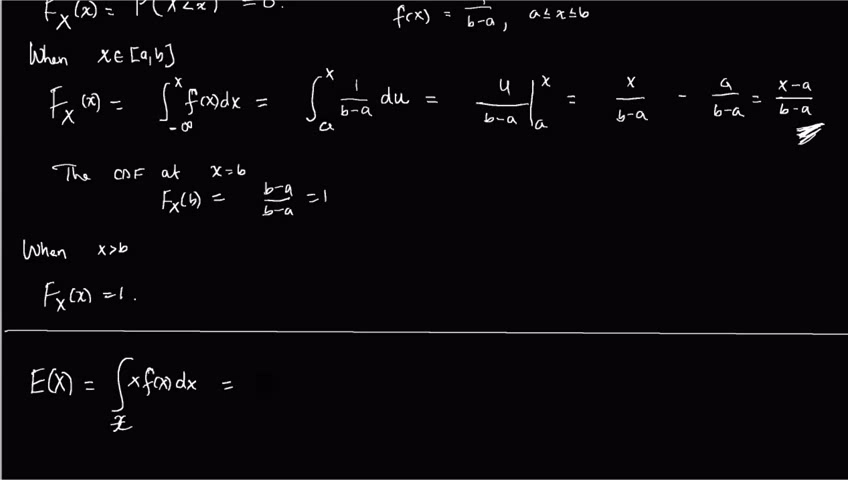 F_X(x) = P(X<x) = 0. f(x) = 1/(b-a), a ≤ x ≤ b
When x∈[a,b]
F_X(x) = ∫_{-∞}^{x} f(x)dx = ∫_a^x 1/(b-a) du = u/(b-a) |_a^x = x/(b-a) - a/(b-a) = (x-a)/(b-a)
The CDF at x=b
F_X(b) = (b-a)/(b-a) = 1
When x>b
F_X(x) = 1.
E(X) = ∫_x x f(x) dx =